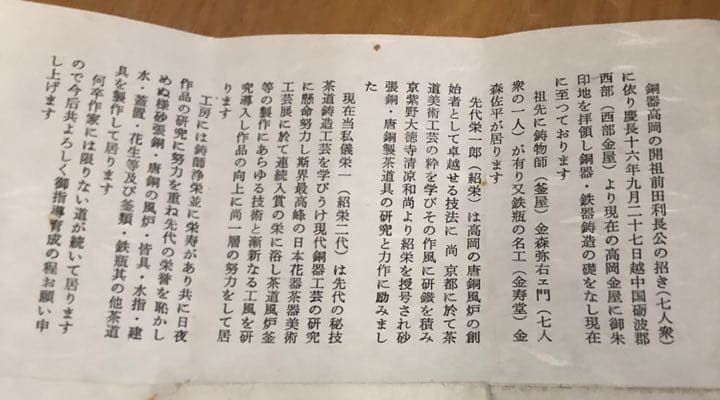 銅器高岡の開祖前田利長公の招き(七人衆)
に依り慶長十六年九月二十七日越中国砺波郡
西部(西部金屋)より現在の高岡金屋に御朱
印地を拝領し銅器・鉄器鋳造の礎をなし現在
に至つております
祖先に鋳物師(釜屋)金森弥右ヱ門(七人
衆の一人)が有り又鉄瓶の名工(金寿堂)金
森佐平が居ります
先代栄一郎(紹栄)は高岡の唐銅風炉の創
始者として卓越せる技法に 尚 京都に於て茶
道美術工芸の粋を学びその作風に研鑚を積み
京紫野大徳寺清凉和尚より紹栄を授号され砂
張銅・唐銅製茶道具の研究と力作に励みまし
た
現在当私儀栄一(紹栄二代)は先代の秘技
茶道鋳造工芸を学びうけ現代銅器工芸の研究
に懸命努力し斯界最高峰の日本花器茶器美術
工芸展に於て連続入賞の栄に浴し茶道風炉釜
等の製作にあらゆる技術と漸新なる工風を研
究導入し作品の向上に尚一層の努力をして居
ります
工房には鋳師浄栄並に栄寿があり共に日夜
作品の研究に努力を重ね先代の栄誉を恥かし
めぬ様砂張銅・唐銅の風炉・皆具・水指・建
水・蓋置・花生等及び釜類・鉄瓶其の他茶道
具を製作して居ります
何卒作家には限りない道が続いて居ります
ので今后共よろしく御指導育成の程お願い申
し上げます